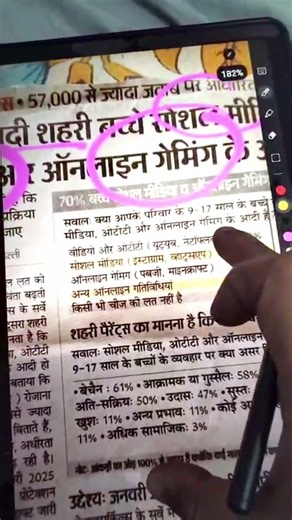 182%
• 57,000 से ज्यादा जवाब पर आधारित
शहरी बच्चे सोशल मीडि
और ऑनलाइन गेमिंग के
70% सोशल मीडिया व ऑनलाइन गेमिंग
सवाल: क्या आपके परिवार के 9-17 साल के बच्चे
मीडिया, ओटीटी और ऑनलाइन गेमिंग के आदी हैं
वीडियो और ओटीटी (यूट्यूब, नेटफ्लि
सोशल मीडिया (इंस्टाग्राम, व्हाट्सएप)
ऑनलाइन गेमिंग (पबजी, माइनक्राफ्ट)
अन्य ऑनलाइन गतिविधियां
किसी भी चीज को लत नहीं है
शहरी पैरेंट्स का मानना है कि
सवाल: सोशल मीडिया, ओटीटी और ऑनलाइन
9-17 साल के बच्चों के व्यवहार पर क्या असर
• बेचैन: 61% • आक्रामक या गुस्सैल: 58%
अति-सक्रिय: 50% • उदास: 47% • सुस्त:
खुश: 11% • अन्य प्रभाव: 11% • कोई
11% • अधिक सामाजिक: 3%
नोट: आंकड़ों का जोड़ 100% से
उद्देश्य: जनवरी
कि
प्रक्रिया
जाए
लत को
बढ़ती
के सर्वे
शहरी
है कि
ओटीटी
आदी हो
बताया कि
) रोजाना
से ज्यादा
बिताते हैं,
अधीरता
रही है।
2025
प्रोटेक्शन
जारी
के सर्वे में